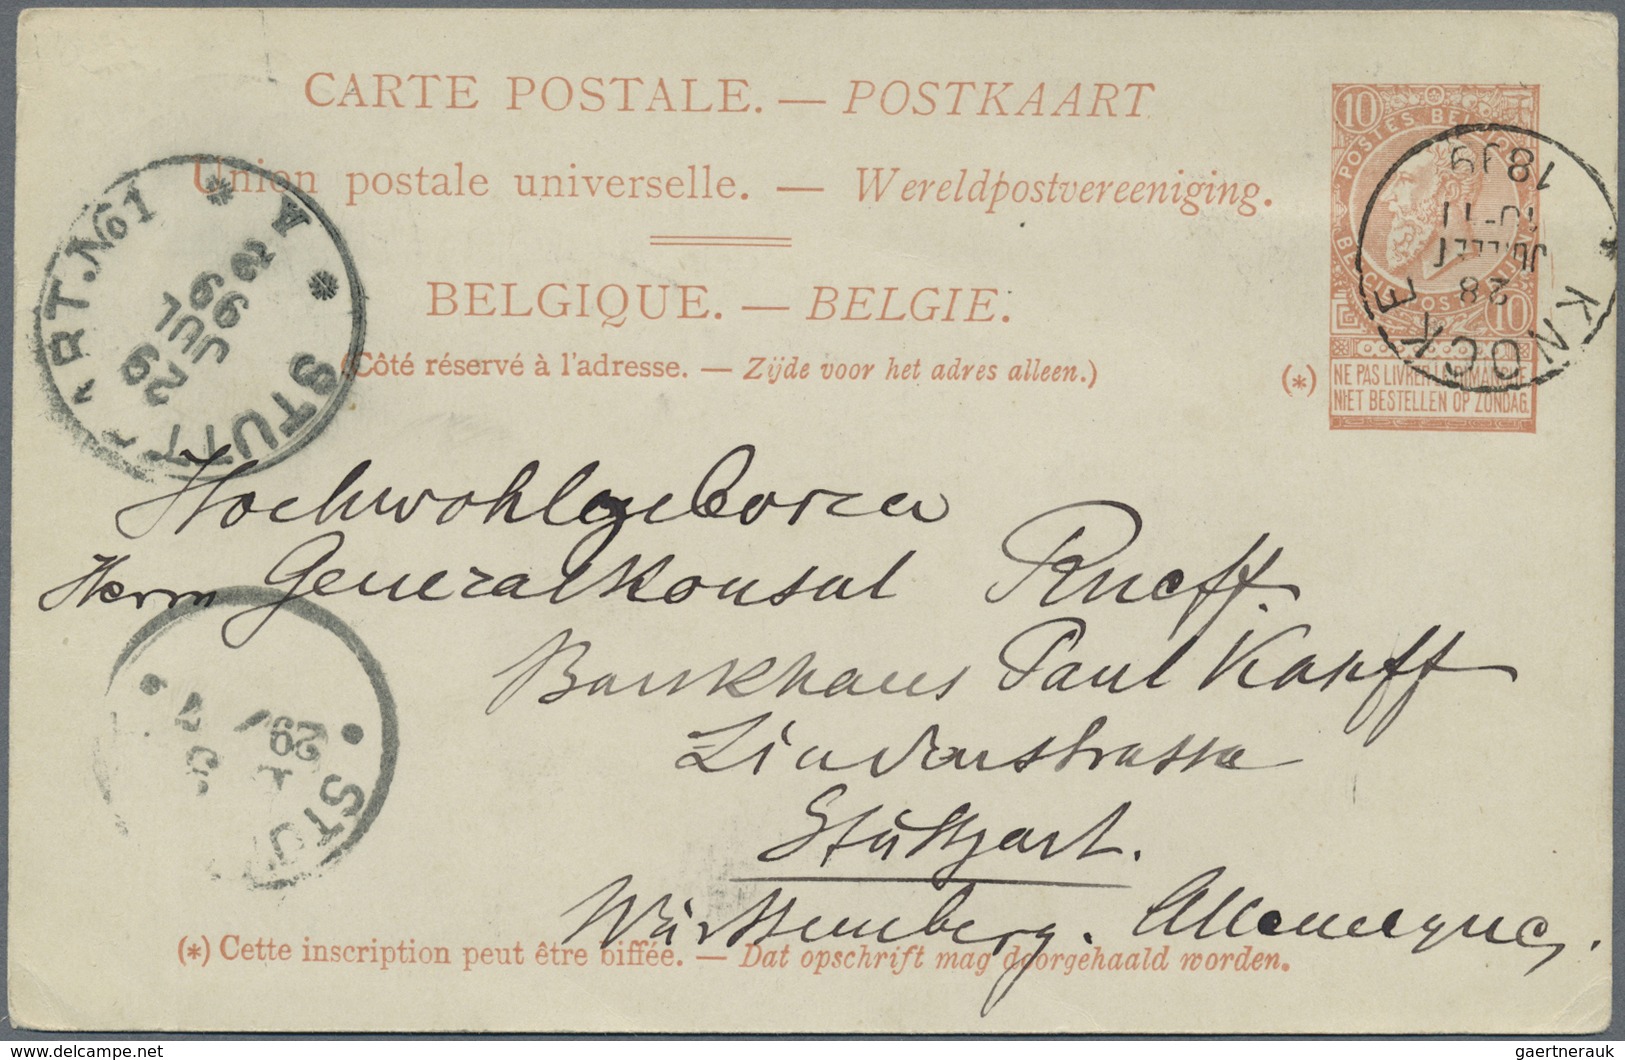 CARTE POSTALE. — POSTKAART
Union postale universelle. — Wereldpostvereeniging.
BELGIQUE. — BELGIE.
(Côté réservé à l'adresse. — Zijde voor het adres alleen.)
10
POSTES BELGIQUE
10
(*)
NE PAS LIVRER LE DIMANCHE
NIET BESTELLEN OP ZONDAG.
KNOCKE
28
JUILLET
10-11
1899
STUTT
ART. No1
29
JUL
99
A
STU
29
Hochwohlgeboren
Herrn Generalkonsul Rueff.
Bankhaus Paul Kapff
Lindenstrasse
Stuttgart.
Württemberg. Allemagne.
(*) Cette inscription peut être biffée. — Dat opschrift mag doorgehaald worden.
www.delcampe.net
gaertnerauk